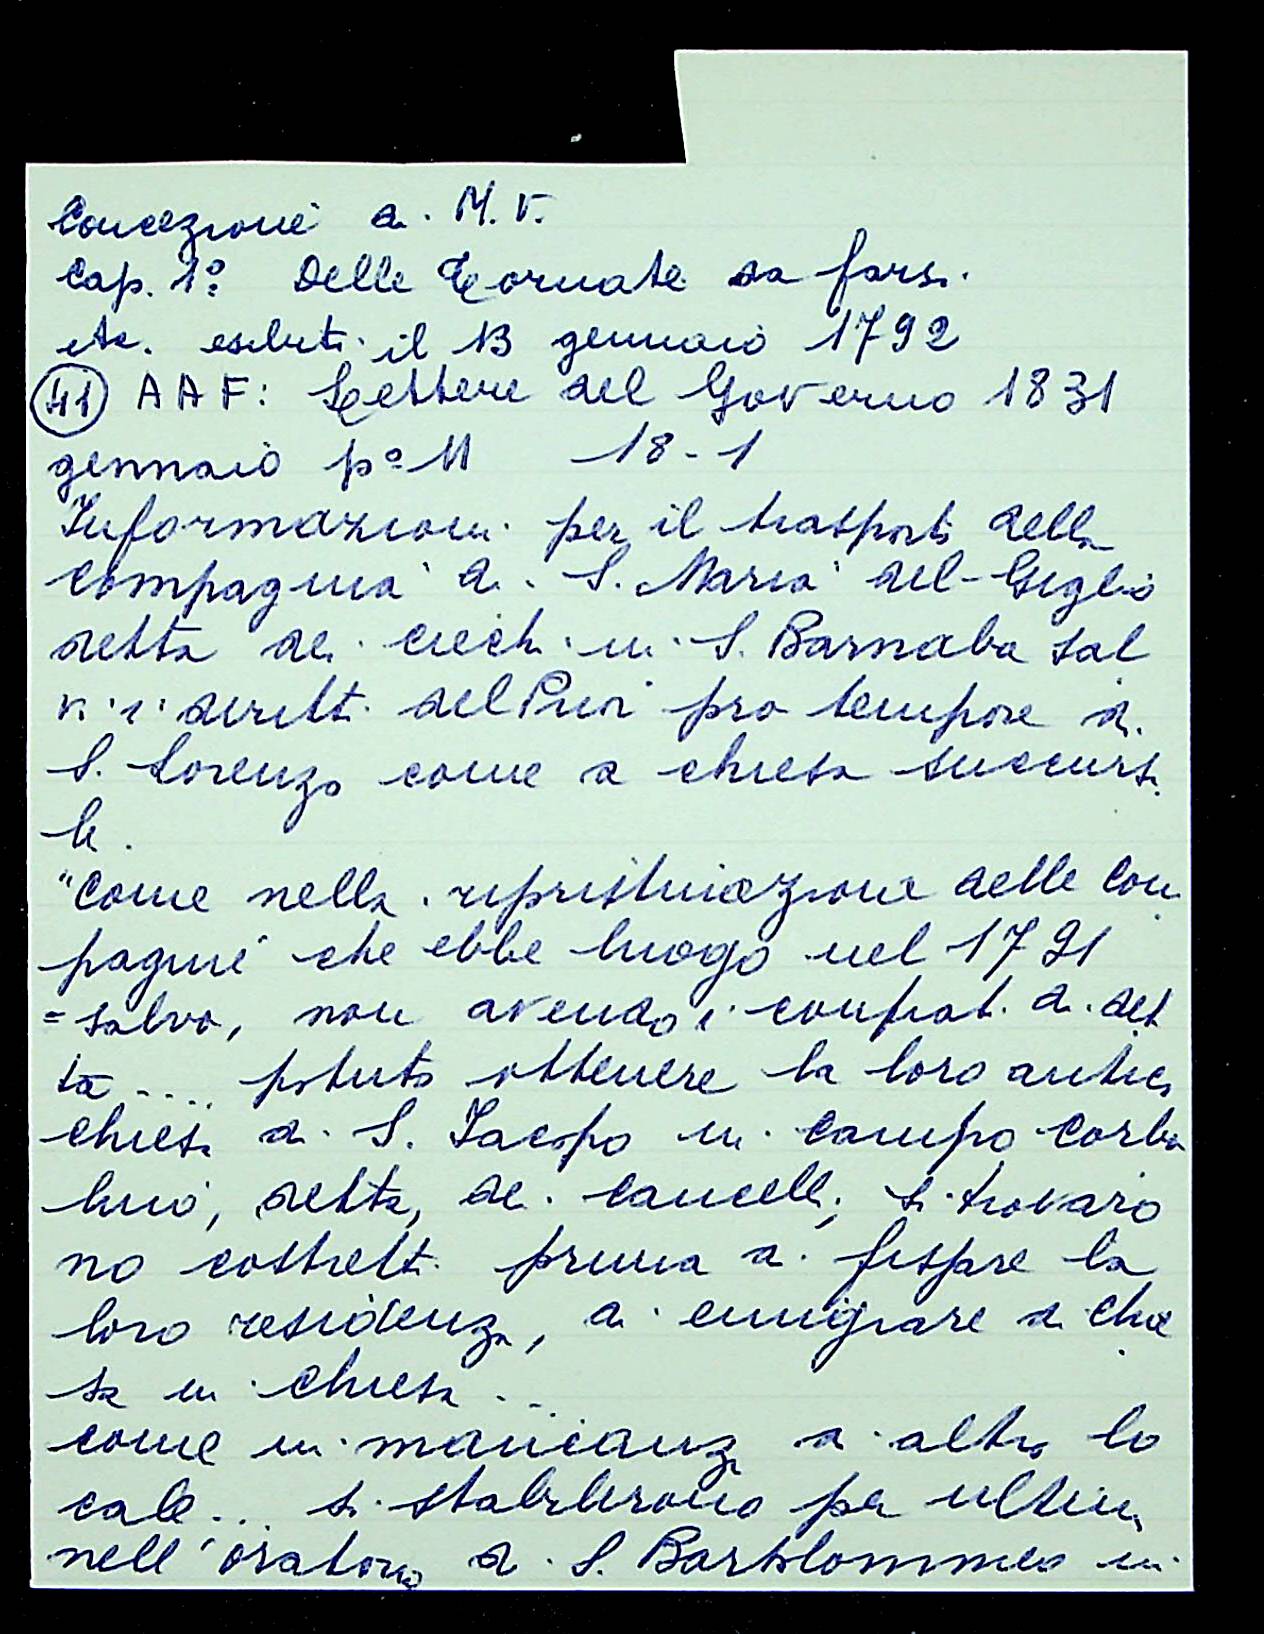 Concezione di M. V.
Cap. 1º: Delle Tornate da farsi.
etc. esibiti il 13 gennaio 1792
(41) A A F: Lettere del Governo 1831
gennaio pº 11 18-1
Informazioni per il trasporto della
Compagnia di S. Maria del Giglio
detta dei ciechi in S. Barnaba sal
vi i diritti del Prior pro tempore di
S. Lorenzo come a chiesa succursa
le.
"Come nella ripristinazione delle Com
pagnie che ebbe luogo nel 1791
= salvo, non avendo i confrat. di det
ta .... potuto ottenere la loro antica
chiesa di S. Jacopo in Campo Corbo
lino, detta, dei Cancelli, si trovaro
no costretti prima di fissare la
loro residenza, di emigrare di chie
sa in chiesa ...
come in mancanza di altro lo
cale ... si stabilirono per ultimo
nell'oratorio di S. Bartolommeo in